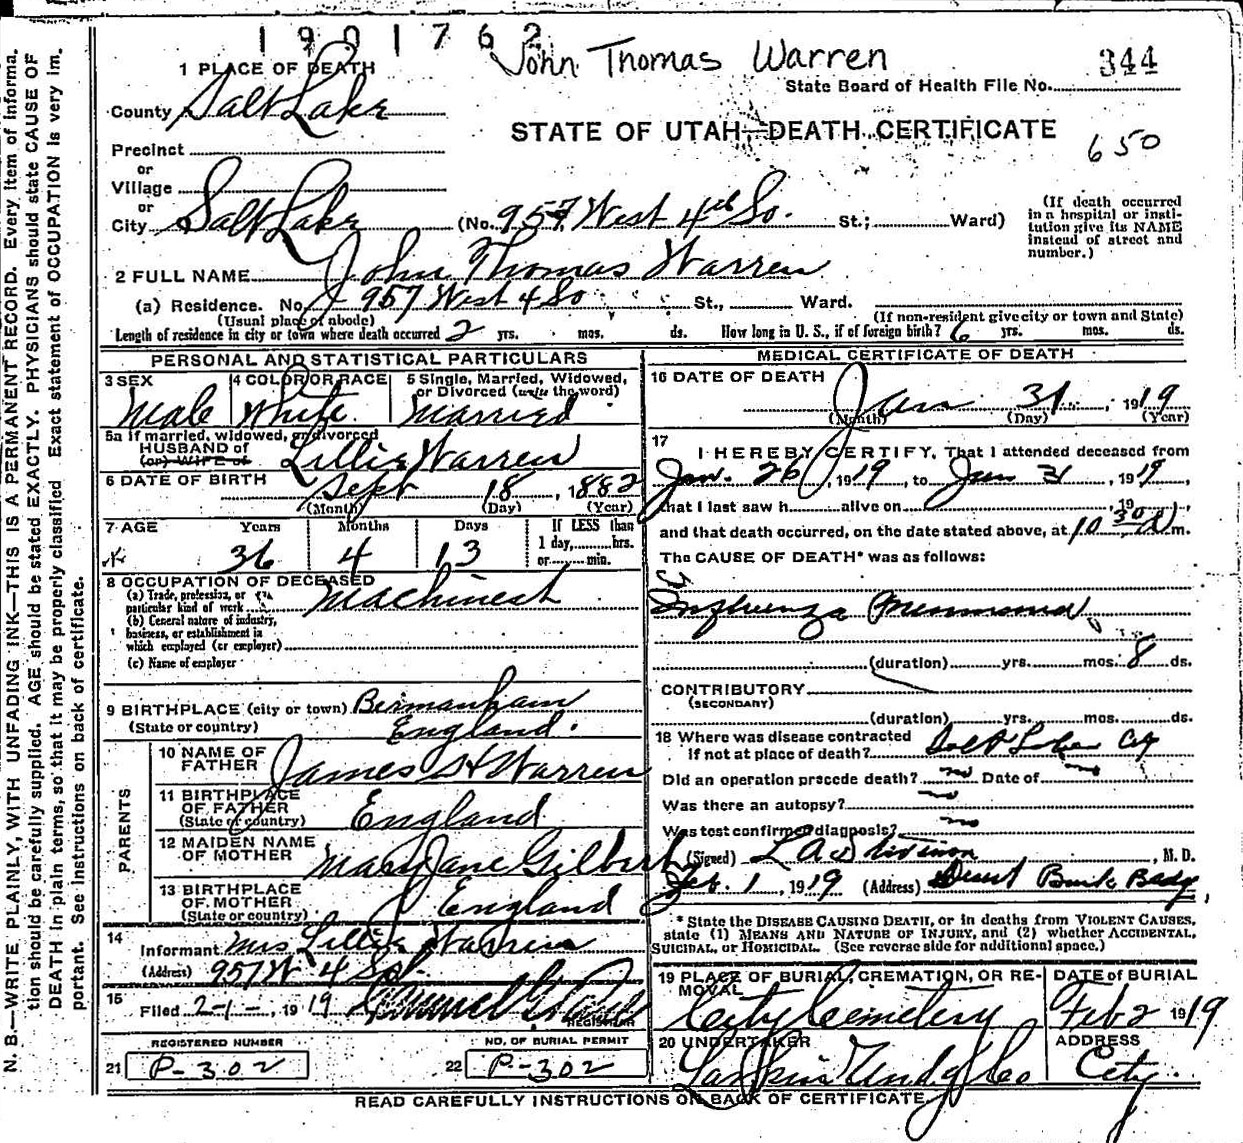 1901762
John Thomas Warren
344
State Board of Health File No.
STATE OF UTAH—DEATH CERTIFICATE
650
1 PLACE OF DEATH
County Salt Lake
Precinct
or
Village
or
City Salt Lake (No. 957 West 4th So. St.; Ward)
(If death occurred in a hospital or insti-
tution give its NAME
instead of street and
number.)
2 FULL NAME John Thomas Warren
(a) Residence. No. 957 West 4 So St., Ward.
(Usual place of abode) (If non-resident give city or town and State)
Length of residence in city or town where death occurred 2 yrs. mos. ds. How long in U. S., if of foreign birth? 6 yrs. mos. ds.
PERSONAL AND STATISTICAL PARTICULARS
3 SEX Male
4 COLOR OR RACE White
5 Single, Married, Widowed,
or Divorced (write the word)
Married
5a If married, widowed, or divorced
HUSBAND of
(or) WIFE of
Lillie Warren
6 DATE OF BIRTH Sept 18, 1882
(Month) (Day) (Year)
7 AGE Years Months Days If LESS than
36 4 13 1 day, hrs.
or min.
8 OCCUPATION OF DECEASED
(a) Trade, profession, or
particular kind of work Machinest
(b) General nature of industry,
business, or establishment in
which employed (or employer)
(c) Name of employer
9 BIRTHPLACE (city or town) Birmanham
(State or country) England.
PARENTS
10 NAME OF
FATHER James H Warren
11 BIRTHPLACE
OF FATHER
(State or country) England
12 MAIDEN NAME
OF MOTHER Mary Jane Gilbert
13 BIRTHPLACE
OF MOTHER
(State or country) England
14
Informant Mrs Lillie Warren
(Address) 957 W 4 So.
15
Filed 2-1-, 1919
REGISTRAR
REGISTERED NUMBER
21 P-302
NO. OF BURIAL PERMIT
22 P-302
MEDICAL CERTIFICATE OF DEATH
16 DATE OF DEATH
Jan 31, 1919
(Month) (Day) (Year)
17
I HEREBY CERTIFY, That I attended deceased from
Jan. 26, 1919, to Jan 31, 1919,
that I last saw h alive on , 19
and that death occurred, on the date stated above, at 10 30 a m.
The CAUSE OF DEATH* was as follows:
Influenza Pneumonia
(duration) yrs. mos. 8 ds.
CONTRIBUTORY
(SECONDARY)
(duration) yrs. mos. ds.
18 Where was disease contracted
if not at place of death? Salt Lake City
Did an operation precede death? no Date of
Was there an autopsy? no
Was test confirmed diagnosis? no
(Signed) L A Stevenson, M. D.
Feb. 1, 1919 (Address) Desert Bank Bldg.
* State the DISEASE CAUSING DEATH, or in deaths from VIOLENT CAUSES,
state (1) MEANS AND NATURE OF INJURY, and (2) whether ACCIDENTAL,
SUICIDAL, or HOMICIDAL. (See reverse side for additional space.)
19 PLACE OF BURIAL, CREMATION, OR RE-
MOVAL
City Cemetery
DATE of BURIAL
Feb 2 1919
20 UNDERTAKER
Larkin Undg Co
ADDRESS
City.
READ CAREFULLY INSTRUCTIONS ON BACK OF CERTIFICATE
N. B.—WRITE PLAINLY, WITH UNFADING INK—THIS IS A PERMANENT RECORD. Every item of informa-
tion should be carefully supplied. AGE should be stated EXACTLY. PHYSICIANS should state CAUSE OF
DEATH in plain terms, so that it may be properly classified. Exact statement of OCCUPATION is very im-
portant. See instructions on back of certificate.